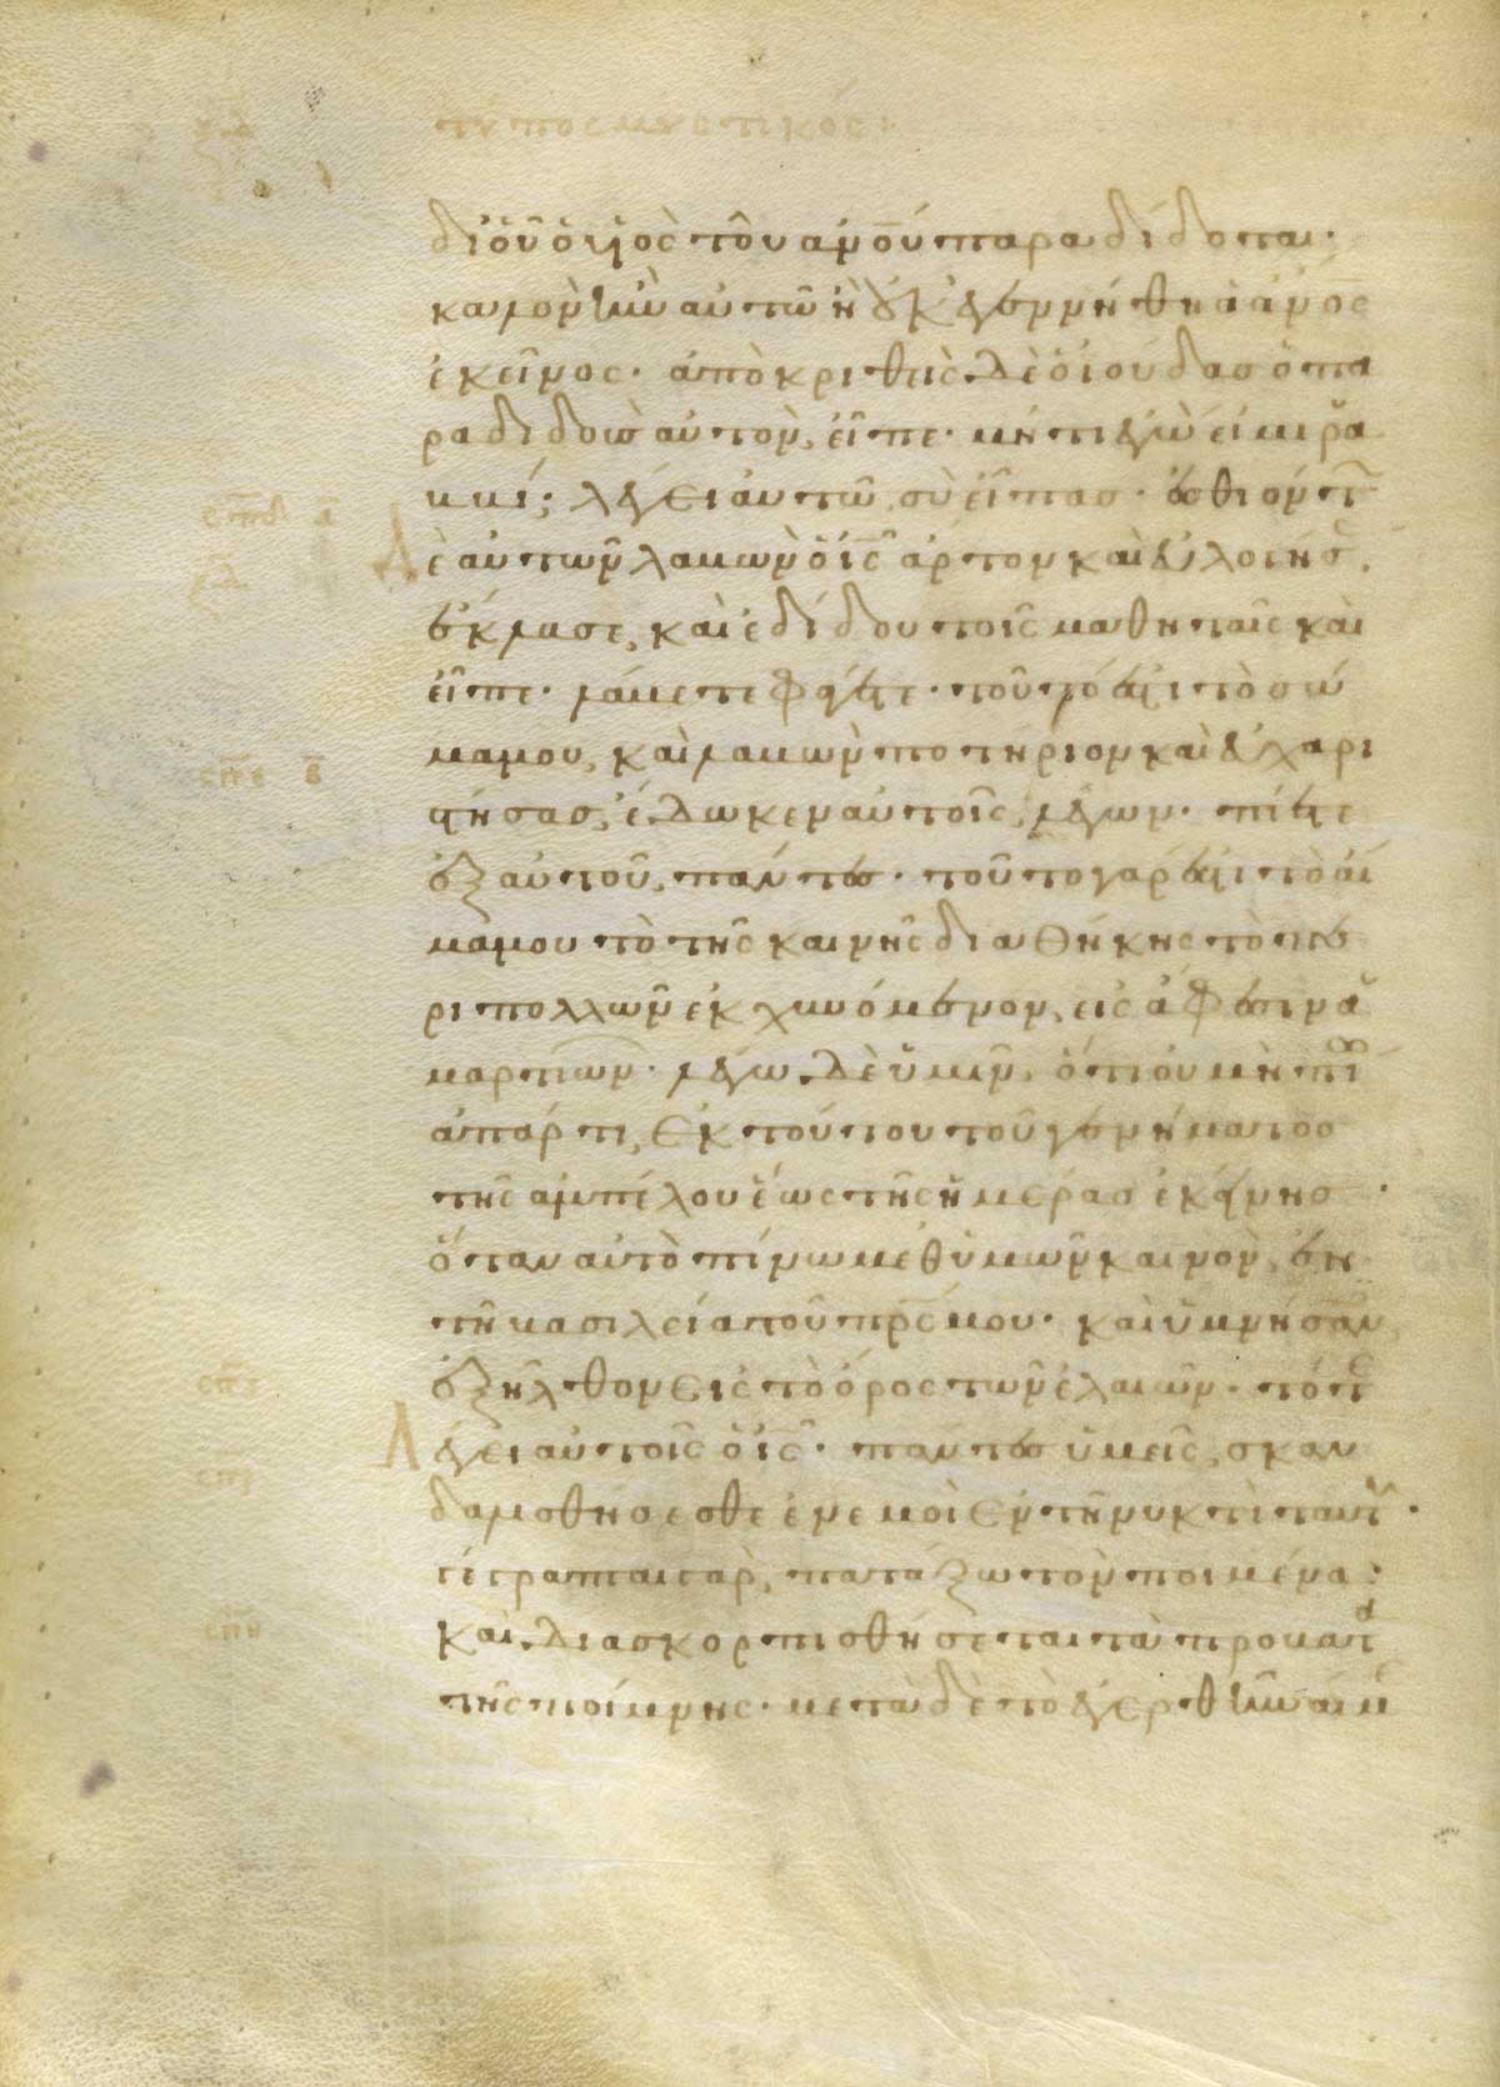 τύπος μυστικός:
δι οὗ ὁ υἱὸς τοῦ ἀν̅ο̅υ̅ παραδίδοται·
καλὸν ἦν αὐτῶ εἰ οὐκ ἐγεννήθη ὁ ἀν̅ο̅ς̅
ἐκεῖνος· ἀποκριθεὶς δὲ ὁ ἰούδας ὁ πα
ραδιδοὺς αὐτὸν, εἶπε· μήτι ἐγώ εἰμι ρα
ββί; λέγει αὐτῶ, σὺ εἶπας· ἐσθιόντ
δὲ αὐτῶν λαβὼν ὁ ι̅ς̅ ἄρτον καὶ εὐλογήσ
ἔκλασε, καὶ ἐδίδου τοῖς μαθηταῖς καὶ
εἶπε· λάβετε φάγετε· τοῦτό ἐστι τὸ σῶ
μα μου, καὶ λαβὼν ποτήριον καὶ εὐχαρι
στήσας, ἔδωκεν αὐτοῖς, λέγων· πίετε
ἐξ αὐτοῦ, πάντες· τοῦτο γάρ ἐστι τὸ αἷ
μα μου τὸ τῆς καινῆς διαθήκης τὸ πε
ρι πολλῶν ἐκχυνόμενον, εἰς ἄφεσιν ἁ
μαρτιῶν· λέγω δὲ ὑμῖν, ὅτι οὐ μὴ πί
ἀπάρτι, ἐκ τούτου τοῦ γεννήματος
τῆς ἀμπέλου ἕως τῆς ἡμέρας ἐκείνης·
ὅταν αὐτὸ πίνω μεθ ὑμῶν καινὸν, ἐν
τῆ βασιλεία τοῦ π̅ρ̅ς̅ μου· καὶ ὑμνήσαν
ἐξῆλθον εἰς τὸ ὄρος τῶν ἐλαιῶν· τότ
λέγει αὐτοῖς ὁ ι̅ς̅· πάντες ὑμεῖς, σκαν
δαλισθήσεσθε ἐν ἐμοὶ ἐν τῆ νυκτὶ ταύτ·
γέγραπται γάρ, πατάξω τὸν ποιμένα·
καὶ διασκορπισθήσεται τὰ πρόβατ
τῆς ποίμνης· μετὰ δὲ τὸ ἐγερθῆναί μ